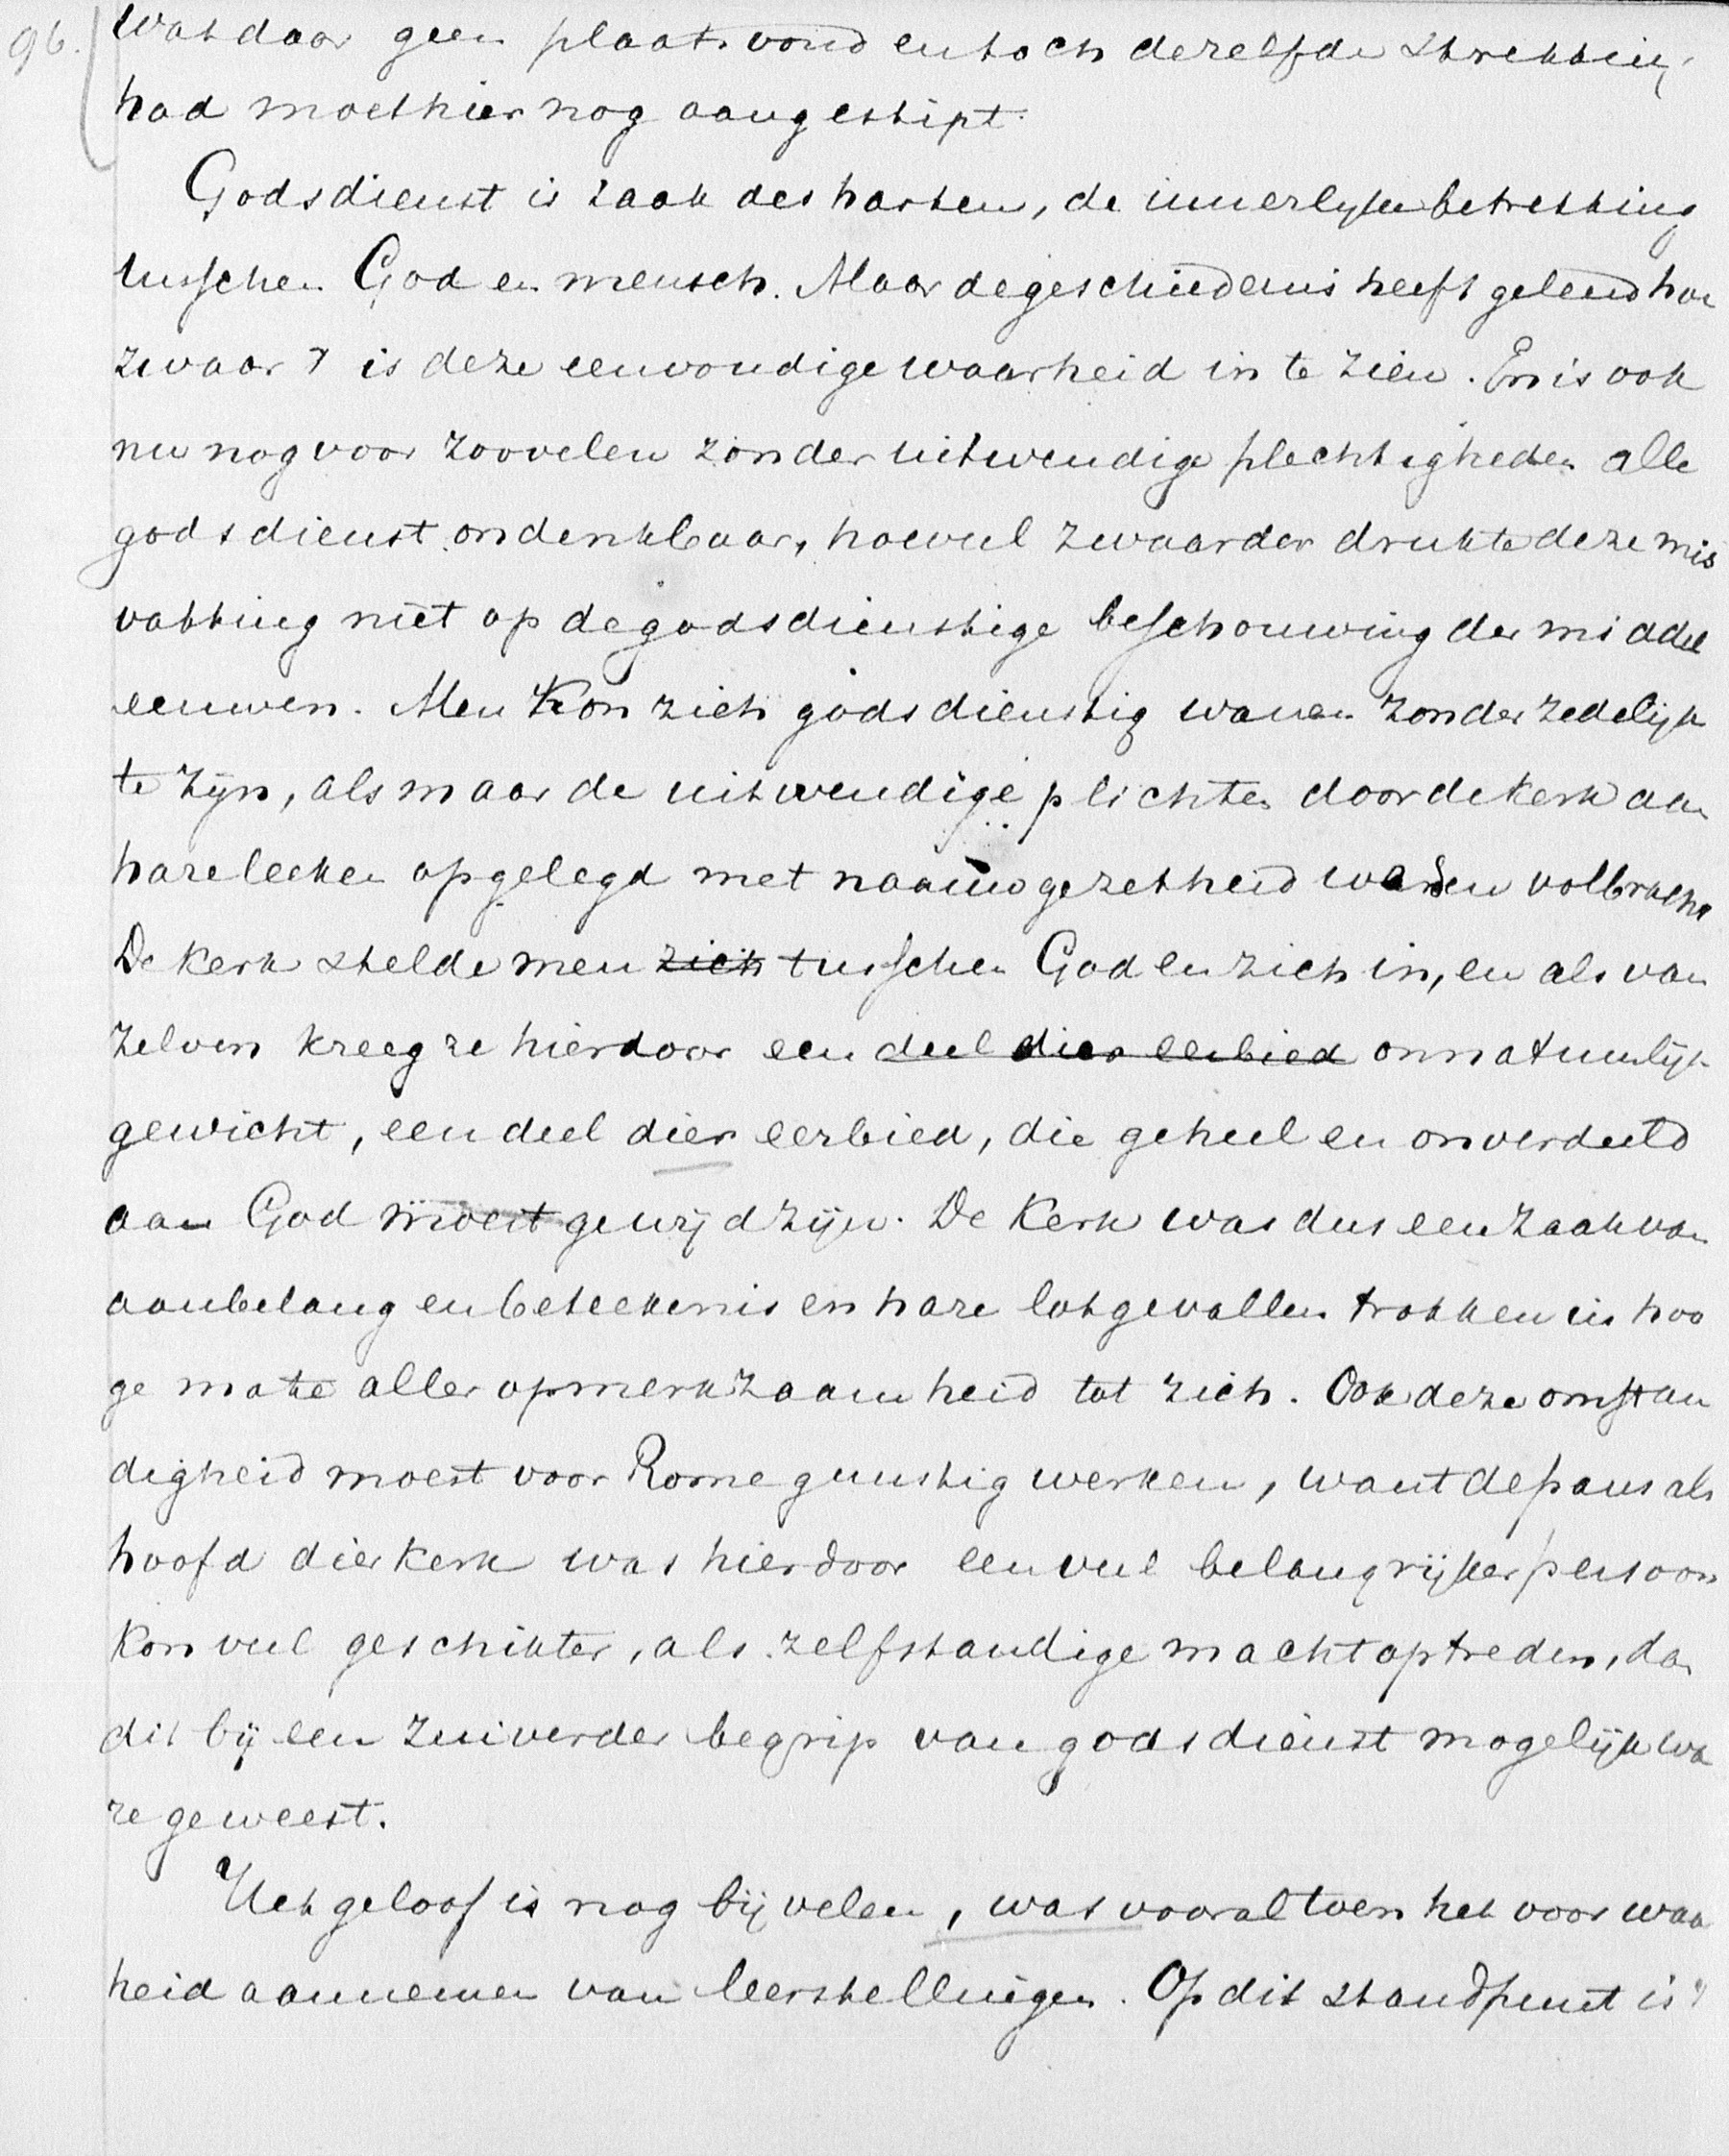 96.
Wat daar geen plaats vond en toch dezelfde strekking
had moet hier nog aangestipt.
Godsdienst is zaak des harten, de innerlijke betrekking
tusschen God en mensch. Maar de geschiedenis heeft geleerd hoe
zwaar 't is deze eenvoudige waarheid in te zien. En is ook
nu nog voor zoovelen zonder uitwendige plechtigheden alle
godsdienst ondenkbaar, hoeveel zwaarder drukte deze mis
vatting niet op de godsdienstige beschouwing der middel
eeuwen. Men kon zich godsdienstig wanen zonder zedelijk
te zijn, als maar de uitwendige plichten door de kerk aan
hare leeken opgelegd met naauwgezetheid werden volbracht
De kerk stelde men zich tusschen God en zich in, en als van
zelven kreeg ze hierdoor een deel dier eerbied onnatuurlijk
gewicht, een deel dier eerbied, die geheel en onverdeeld
aan God moest gewijd zijn. De Kerk was dus een zaak van
aanbelang en beteekenis en hare lotgevallen trokken in hoo
ge mate aller opmerkzaamheid tot zich. Ook deze omstan
digheid moest voor Rome gunstig werken, want de paus als
hoofd dier kerk was hierdoor een veel belangrijker persoon
kon veel geschikter, als zelfstandige macht optreden, dan
dit bij een zuiverder begrip van godsdienst mogelijk wa
re geweest.
Het geloof is nog bij velen, was vooral toen het voor waar
heid aannemen van leerstellingen. Op dit standpunt is 't